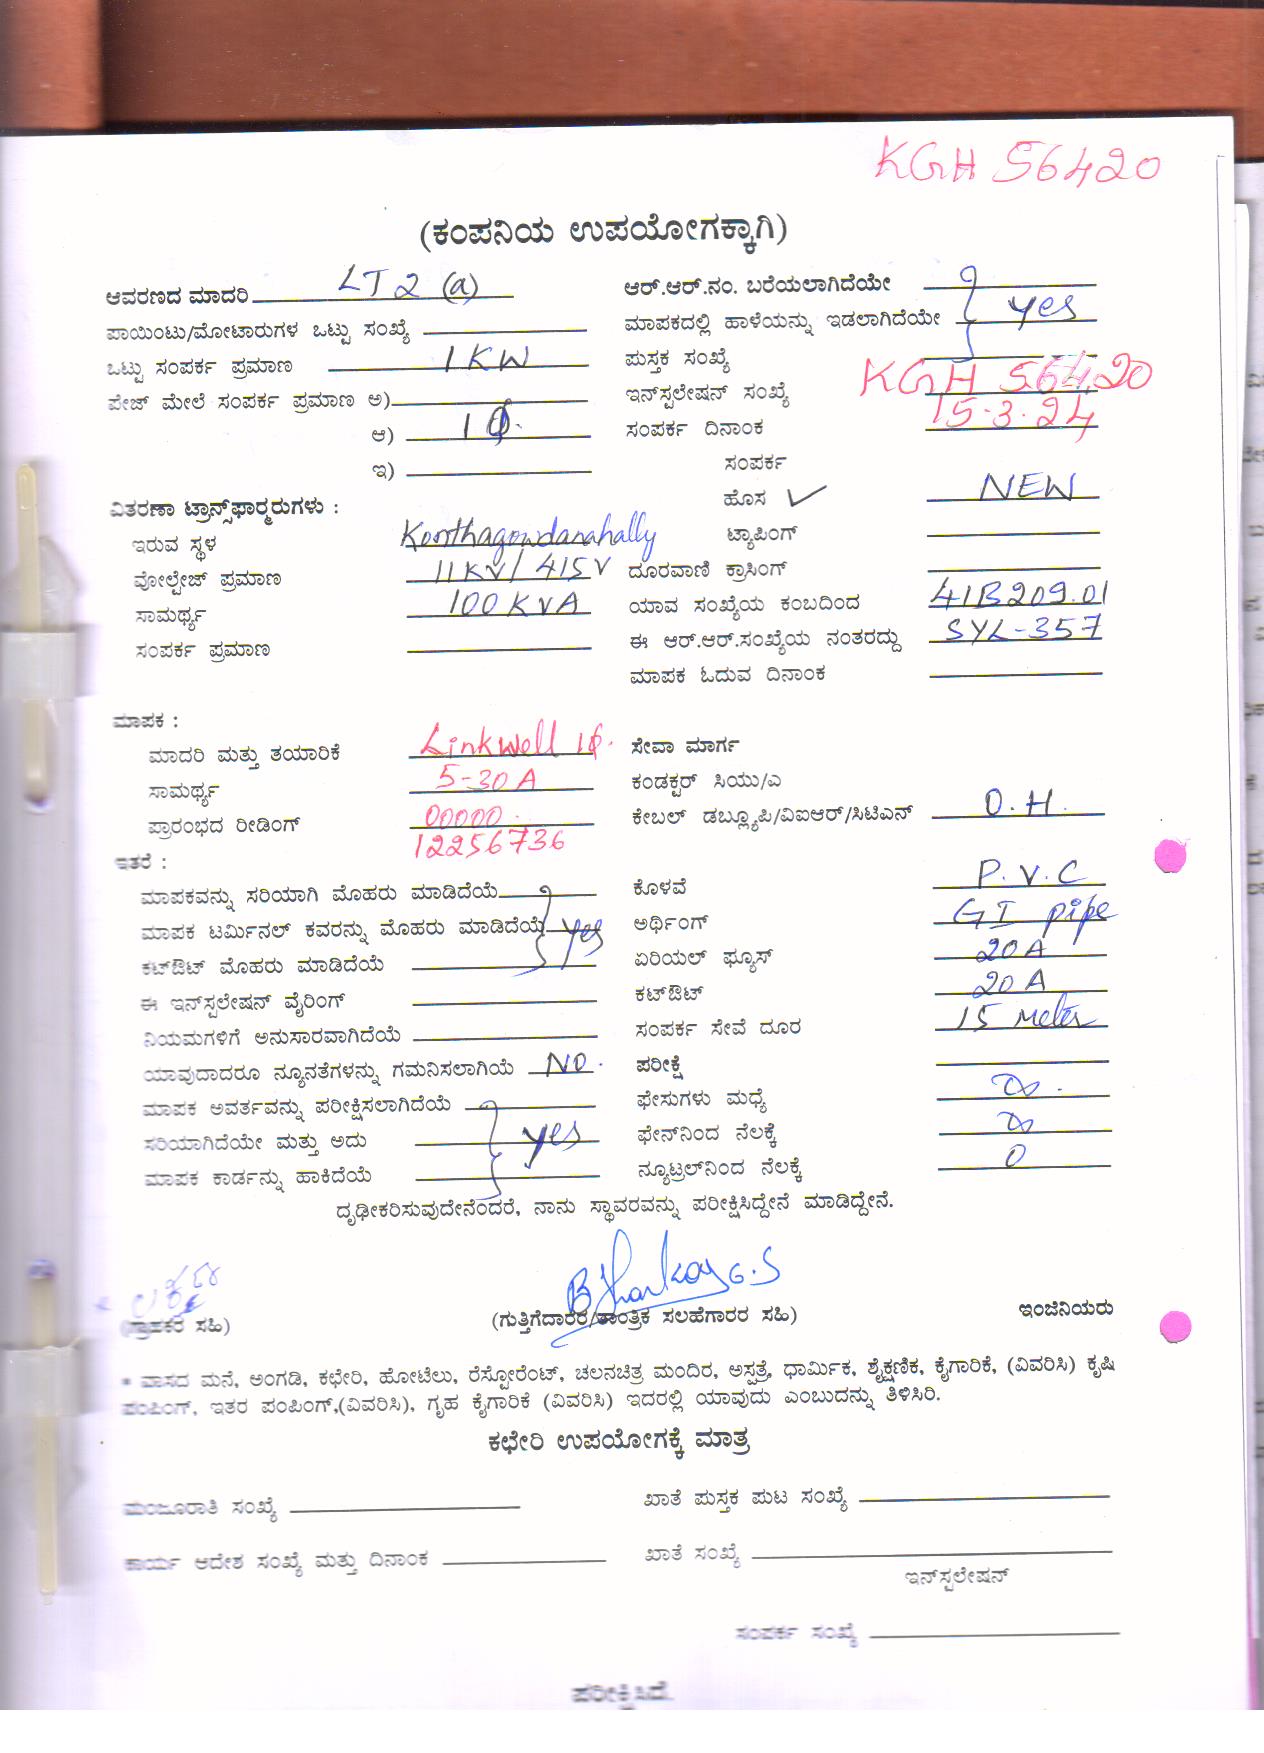 KGH 56420
(ಕಂಪನಿಯ ಉಪಯೋಗಕ್ಕಾಗಿ)
ಆವರಣದ ಮಾದರಿ LT 2 (a)
ಪಾಯಿಂಟು/ಮೋಟಾರುಗಳ ಒಟ್ಟು ಸಂಖ್ಯೆ
ಒಟ್ಟು ಸಂಪರ್ಕ ಪ್ರಮಾಣ 1 KW
ಪೇಜ್ ಮೇಲೆ ಸಂಪರ್ಕ ಪ್ರಮಾಣ ಅ)
ಆ) 1ϕ.
ಇ)
ವಿತರಣಾ ಟ್ರಾನ್ಸ್‌ಫಾರ್‍ಮರುಗಳು :
ಇರುವ ಸ್ಥಳ
ವೋಲ್ಟೇಜ್ ಪ್ರಮಾಣ 11KV/415V
ಸಾಮರ್ಥ್ಯ 100 KVA
ಸಂಪರ್ಕ ಪ್ರಮಾಣ
ಆರ್.ಆರ್.ನಂ. ಬರೆಯಲಾಗಿದೆಯೇ
ಮಾಪಕದಲ್ಲಿ ಹಾಳೆಯನ್ನು ಇಡಲಾಗಿದೆಯೇ yes
ಪುಸ್ತಕ ಸಂಖ್ಯೆ
ಇನ್‌ಸ್ಟಲೇಷನ್ ಸಂಖ್ಯೆ KGH 56420
ಸಂಪರ್ಕ ದಿನಾಂಕ 15.3.24
ಸಂಪರ್ಕ
ಹೊಸ ✓ NEW
ಟ್ಯಾಪಿಂಗ್
ದೂರವಾಣಿ ಕ್ರಾಸಿಂಗ್
ಯಾವ ಸಂಖ್ಯೆಯ ಕಂಬದಿಂದ 41B209.01
ಈ ಆರ್.ಆರ್.ಸಂಖ್ಯೆಯ ನಂತರದ್ದು SYL-357
ಮಾಪಕ ಓದುವ ದಿನಾಂಕ
ಮಾಪಕ :
ಮಾದರಿ ಮತ್ತು ತಯಾರಿಕೆ Linkwell 1ϕ.
ಸಾಮರ್ಥ್ಯ 5-30 A
ಪ್ರಾರಂಭದ ರೀಡಿಂಗ್ 00000.
12256736
ಇತರೆ :
ಮಾಪಕವನ್ನು ಸರಿಯಾಗಿ ಮೊಹರು ಮಾಡಿದೆಯೆ
ಮಾಪಕ ಟರ್ಮಿನಲ್ ಕವರನ್ನು ಮೊಹರು ಮಾಡಿದೆಯೆ yes
ಕಟ್‌ಔಟ್ ಮೊಹರು ಮಾಡಿದೆಯೆ
ಈ ಇನ್‌ಸ್ಟಲೇಷನ್ ವೈರಿಂಗ್
ನಿಯಮಗಳಿಗೆ ಅನುಸಾರವಾಗಿದೆಯೆ
ಯಾವುದಾದರೂ ನ್ಯೂನತೆಗಳನ್ನು ಗಮನಿಸಲಾಗಿಯೆ NO.
ಮಾಪಕ ಅವರ್ತವನ್ನು ಪರೀಕ್ಷಿಸಲಾಗಿದೆಯೆ
ಸರಿಯಾಗಿದೆಯೇ ಮತ್ತು ಅದು yes
ಮಾಪಕ ಕಾರ್ಡನ್ನು ಹಾಕಿದೆಯೆ
ಸೇವಾ ಮಾರ್ಗ
ಕಂಡಕ್ಟರ್ ಸಿಯು/ಎ
ಕೇಬಲ್ ಡಬ್ಲ್ಯೂಪಿ/ವಿಐಆರ್/ಸಿಟಿಎನ್ O.H.
ಕೊಳವೆ P.V.C
ಅರ್ಥಿಂಗ್ GI pipe
ಏರಿಯಲ್ ಫ್ಯೂಸ್ 20 A
ಕಟ್‌ಔಟ್ 20 A
ಸಂಪರ್ಕ ಸೇವೆ ದೂರ 15 Meter
ಪರೀಕ್ಷೆ
ಫೇಸುಗಳು ಮಧ್ಯೆ ∞.
ಫೇಸ್‌ನಿಂದ ನೆಲಕ್ಕೆ ∞
ನ್ಯೂಟ್ರಲ್‌ನಿಂದ ನೆಲಕ್ಕೆ 0
ದೃಢೀಕರಿಸುವುದೇನೆಂದರೆ, ನಾನು ಸ್ಥಾವರವನ್ನು ಪರೀಕ್ಷಿಸಿದ್ದೇನೆ ಮಾಡಿದ್ದೇನೆ.
(ಗ್ರಾಹಕರ ಸಹಿ)
(ಗುತ್ತಿಗೆದಾರರ/ತಾಂತ್ರಿಕ ಸಲಹೆಗಾರರ ಸಹಿ)
ಇಂಜಿನಿಯರು
* ವಾಸದ ಮನೆ, ಅಂಗಡಿ, ಕಛೇರಿ, ಹೋಟೆಲು, ರೆಸ್ಟೋರೆಂಟ್, ಚಲನಚಿತ್ರ ಮಂದಿರ, ಅಸ್ಪತ್ರೆ, ಧಾರ್ಮಿಕ, ಶೈಕ್ಷಣಿಕ, ಕೈಗಾರಿಕೆ, (ವಿವರಿಸಿ) ಕೃಷಿ
ಪಂಪಿಂಗ್, ಇತರ ಪಂಪಿಂಗ್,(ವಿವರಿಸಿ), ಗೃಹ ಕೈಗಾರಿಕೆ (ವಿವರಿಸಿ) ಇದರಲ್ಲಿ ಯಾವುದು ಎಂಬುದನ್ನು ತಿಳಿಸಿರಿ.
ಕಛೇರಿ ಉಪಯೋಗಕ್ಕೆ ಮಾತ್ರ
ಮಂಜೂರಾತಿ ಸಂಖ್ಯೆ
ಖಾತೆ ಪುಸ್ತಕ ಪುಟ ಸಂಖ್ಯೆ
ಕಾರ್ಯ ಆದೇಶ ಸಂಖ್ಯೆ ಮತ್ತು ದಿನಾಂಕ
ಖಾತೆ ಸಂಖ್ಯೆ
ಇನ್‌ಸ್ಟಲೇಷನ್
ಸಂಪರ್ಕ ಸಂಖ್ಯೆ
ಪರೀಕ್ಷಿಸಿದೆ.